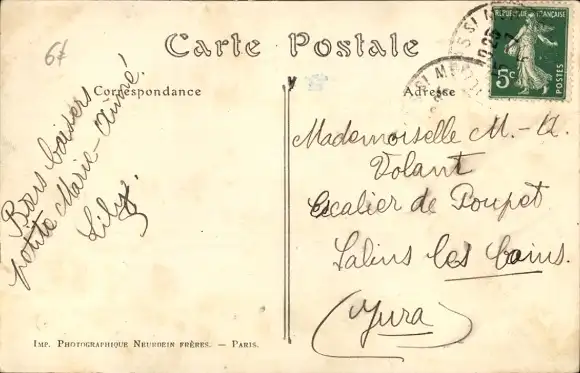 67
Carte Postale
Correspondance
Adresse
RÉPUBLIQUE FRANÇAISE
5c
POSTES
Bons baisers
petite Marie-Aimé!
Lily.
Mademoiselle M.-A.
Volant
Escalier de Poupet
Salins les bains.
(Jura)
IMP. PHOTOGRAPHIQUE NEURDEIN FRÈRES. — PARIS.